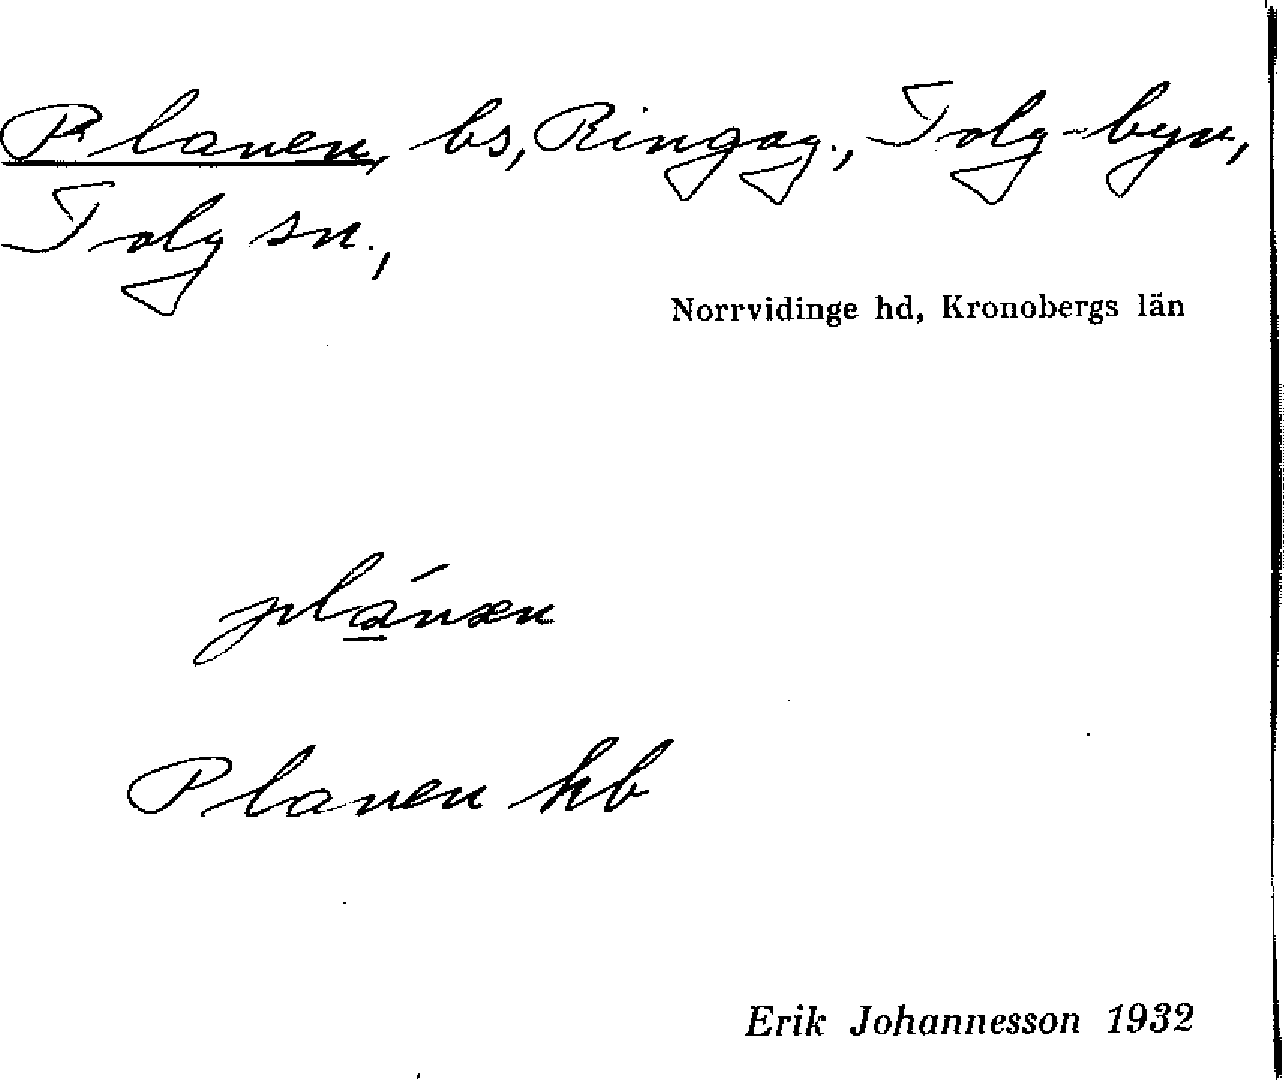 Planen, bs, Ringag., Tolg-byn,
Tolg sn.,
Norrvidinge hd, Kronobergs län
plánæn
Planen kb
Erik Johannesson 1932